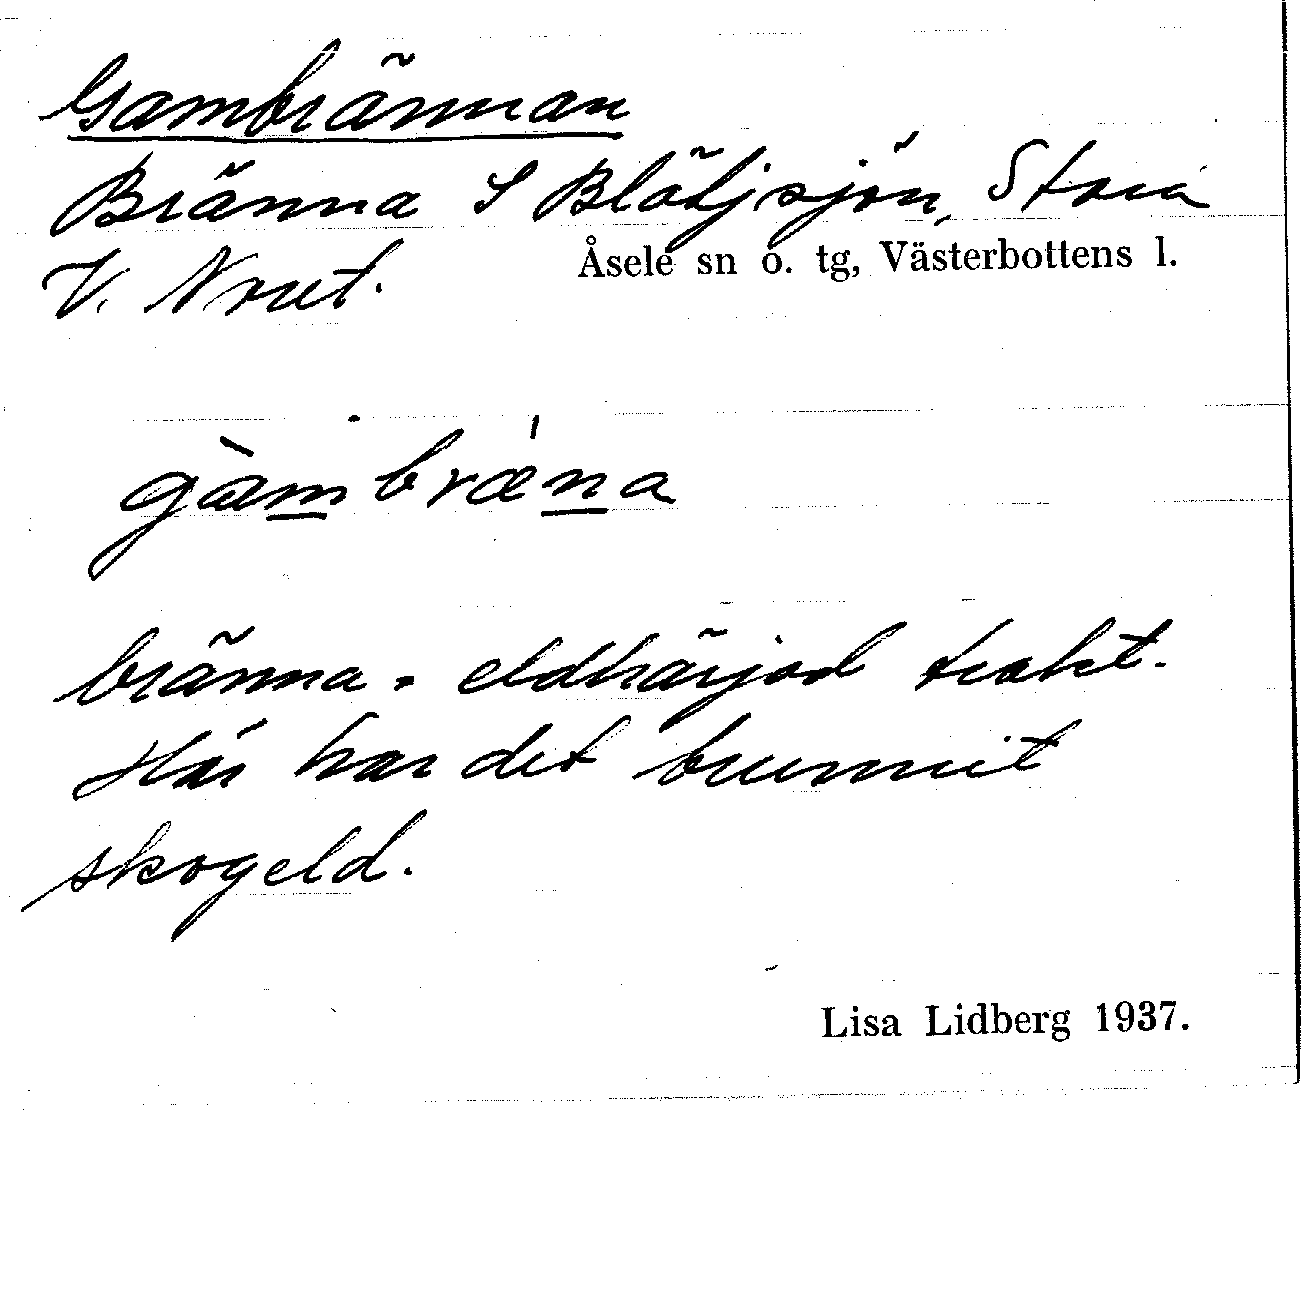 Gambrännan
Bränna S Blötjsjön, Stora
Åsele sn o. tg, Västerbottens l.
V. Nrut.
gàmbræ̀na
bränna = eldhärjad trakt.
Här har det brunnit
skogeld.
Lisa Lidberg 1937.